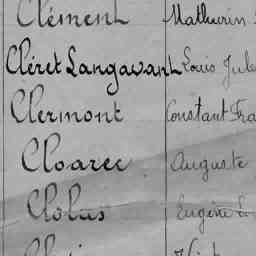 Clément Mathurin
Cléret Langavant Louis Jules
Clermont Constant Fra
Cloarec Auguste
Clolus Eugène